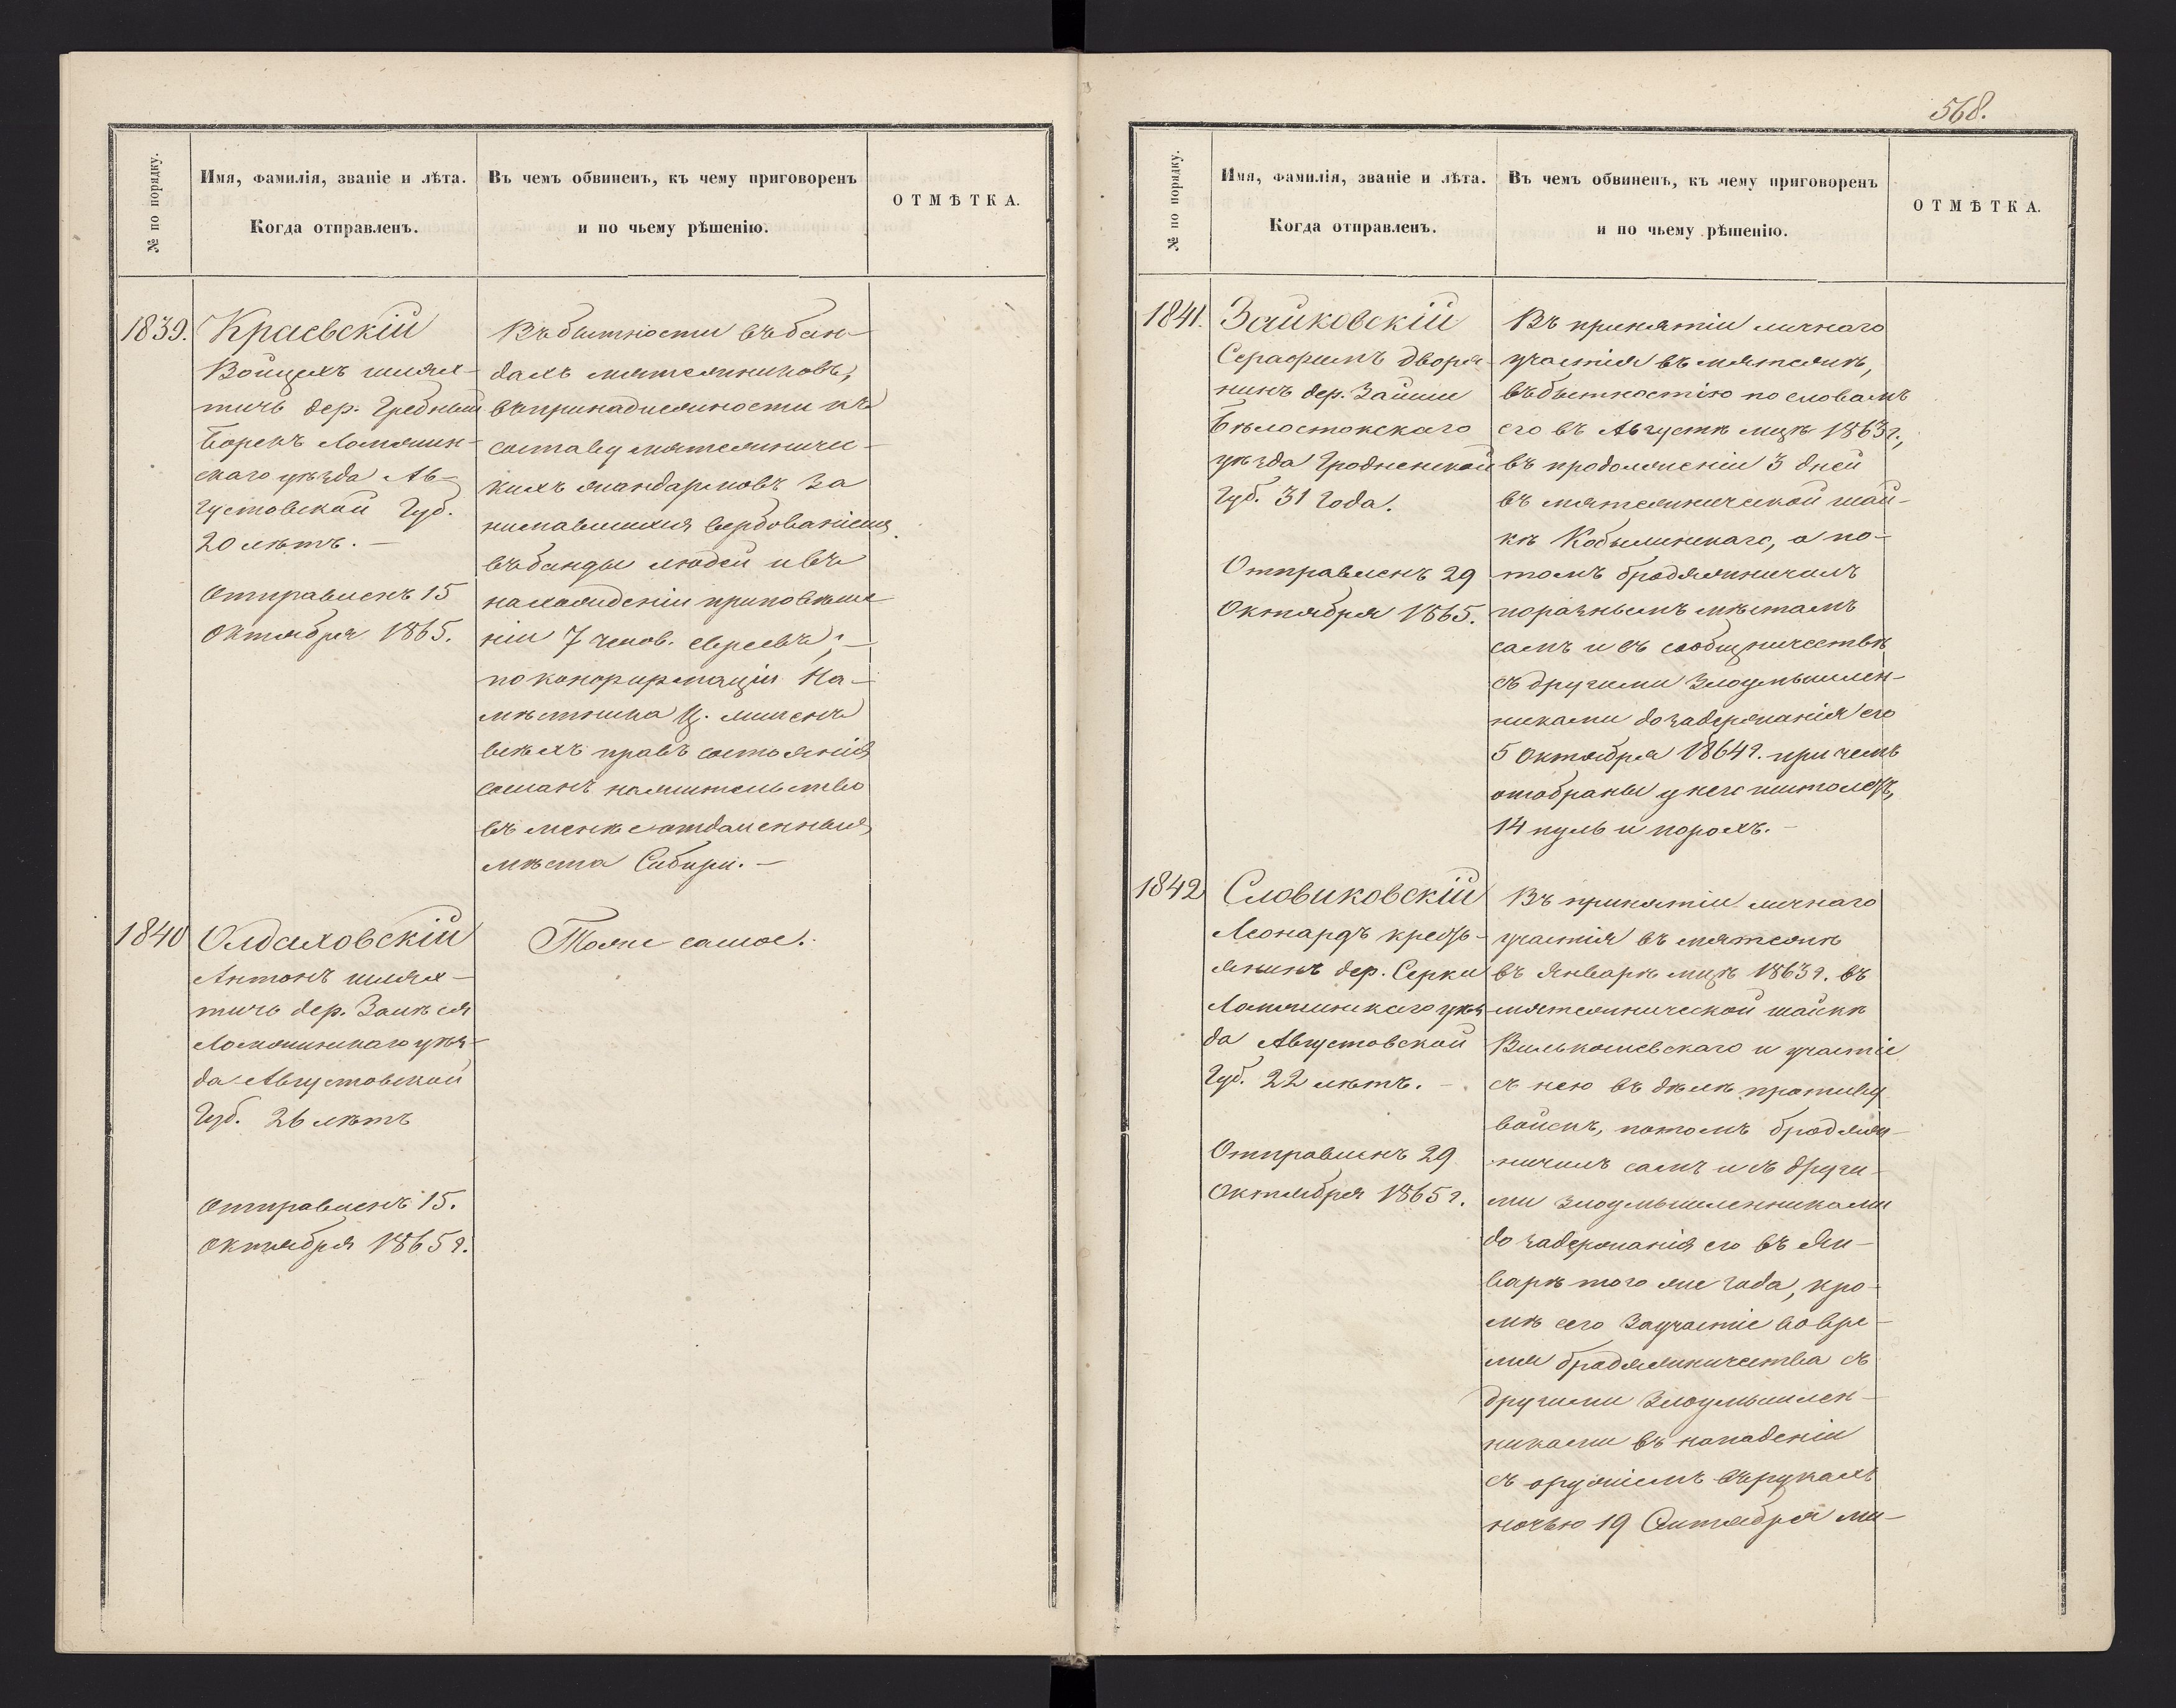 568.
№ по порядку.
Имя, фамилія, званіе и лѣта.
Когда отправленъ.
Въ чемъ обвиненъ, къ чему приговоренъ
и по чьему рѣшенію.
ОТМѢТКА.
1839.
Краевскій
Войцехъ шлях-
тичь дер. Гребный
Борекъ Ломжин-
скаго уѣзда Ав-
густовской Губ.
20 лѣтъ. —
Отправленъ 15
Октября 1865.
Въ бытности въ бан-
дахъ мятежниковъ,
въ принадлежности къ
составу мятежничес-
кихъ жандармовъ за
нимавшихся вербованіемъ
въ банды людей и въ
нахожденіи при повѣше
ніи 7 челов. евреевъ; —
по конфирмаціи На-
мѣстника Ц. лишенъ
всѣхъ правъ состоянія
сосланъ на жительство
въ менѣе отдаленныя
мѣста Сибири. —
1840
Олдаховскій
Антонъ шлях-
тичь дер.
Ломжинскаго уѣз-
да Августовской
Губ. 26 лѣтъ
Отправленъ 15.
Октября 1865 г.
Тоже самое.
№ по порядку.
Имя, фамилія, званіе и лѣта.
Когда отправленъ.
Въ чемъ обвиненъ, къ чему приговоренъ
и по чьему рѣшенію.
ОТМѢТКА.
1841.
Зайковскій
Серафимъ дворя-
нинъ дер. Зайки
Бѣлостокскаго
уѣзда Гродненской
Губ. 31 года.
Отправленъ 29
Октября 1865.
Въ принятіи личнаго
участія въ мятежѣ,
въ бытностію по словамъ
его въ Августѣ мцѣ 1863 г.,
въ продолженіи 3 дней
въ мятежнической шай-
кѣ Кобылинскаго, а по-
томъ бродяжничалъ
по разнымъ мѣстамъ
самъ и въ сообщничествѣ
съ другими злоумышлен-
никами до задержанія его
5 Октября 1864 г. при чемъ
отобраны у него пистолетъ,
14 пуль и порохъ. —
1842
Словиковскій
Леонардъ кресть-
янинъ дер. Серки
Ломжинскаго уѣз
да Августовской
Губ. 22 лѣтъ. —
Отправленъ 29
Октября 1865 г.
Въ принятіи личнаго
участія въ мятежѣ
въ Январѣ мцѣ 1863 г. въ
мятежнической шайкѣ
Вилькошевскаго и участіе
съ нею въ дѣлѣ противу
войскъ, потомъ бродяж-
ничалъ самъ и съ други-
ми злоумышленниками
до задержанія его въ Ян-
варѣ того же года, кро-
мѣ сего за участіе во вре-
мя бродяжничества съ
другими злоумышлен-
никами въ нападеніи
съ оружіемъ въ рукахъ
ночью 19 Сентября ми-